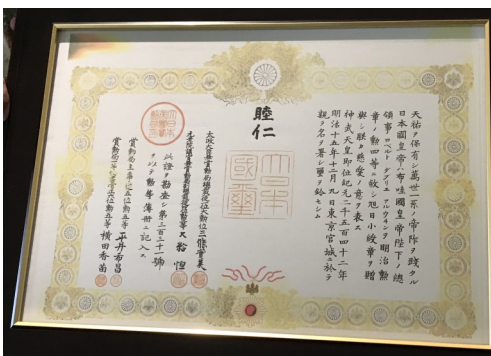 天祐ヲ保有シ萬世一系ノ帝阼ヲ踐タル
日本國皇帝ハ布哇國皇帝陛下ノ總
領事ロベルト ダブリユ アルウヰンヲ明治勲
章ノ勲四等ニ敍シ旭日小綬章ヲ贈
與シ朕カ慈愛ノ意ヲ表ス
神武天皇即位紀元二千五百四十二年
明治十五年十二月九日東京宮城ニ於テ
親ラ名ヲ署シ璽ヲ鈐セシム
睦仁
大日本國璽
太政大臣兼賞勲局總裁從一位大勲位三條實美
元老院議官兼賞勲局副總裁從四位勲二等大給恒
此證ヲ勘査シ第三百三十一號
ヲ以テ勲等簿冊ニ記入ス
賞勲局主事從五位勲五等平井希昌
横田香苗